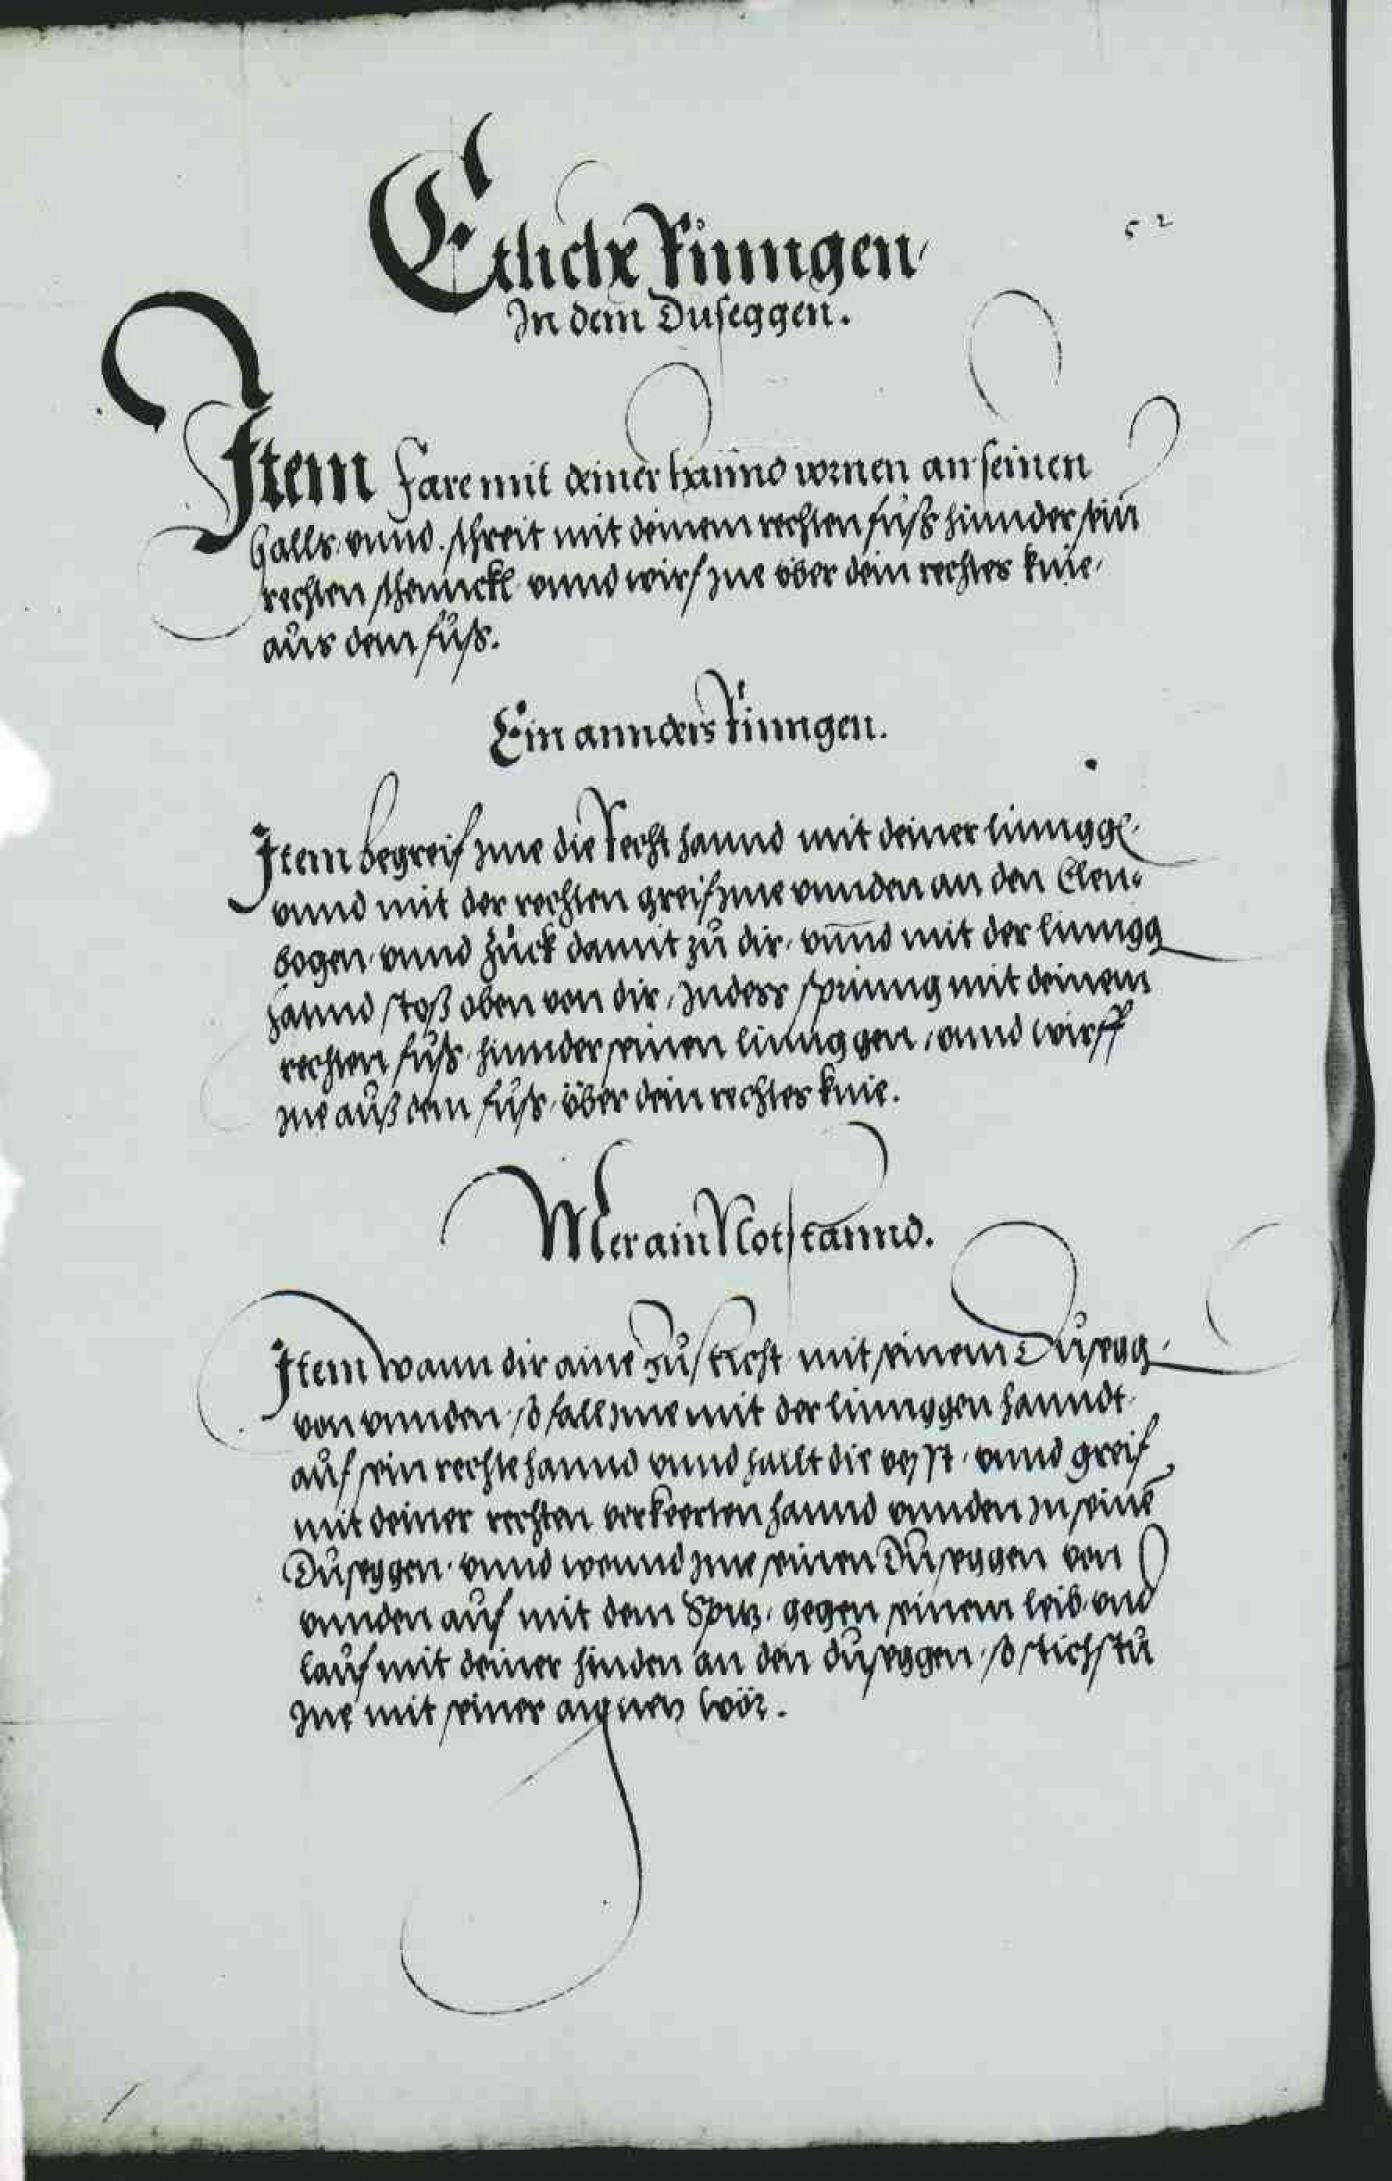 Etliche Ringen
52
In dem Duseggen.
Item Fare mit deiner hannd vornen an seinen
halls, vnnd schreit mit deinem rechten fůß hinnder sein
rechten schennckl, vnnd wirf jne über dein rechtes knie,
aůs dem fůß.
Ein annders Ringen.
Item begreif jme die Recht hannd mit deiner linngge,
vnnd mit der rechten greif jme vnnden an den Elen-
bogen, vnnd zůck damit zů dir, vnnd mit der linngg
hannd stoß oben von dir, Indess spring mit deinem
rechten fůß, hinnder seinen linnggen, vnnd wirff
jne aůß dem fůß, über dein rechtes knie.
Mer ain Notstannd.
Item wann dir aine zůsticht mit seinem Důsegg,
von vnnden, so fall jme mit der linnggen hanndt,
auf sein rechte hannd vnnd hallt die vesst, vnnd greif
mit deiner rechten verkeerten hannd vnnden in seinē
Důseggen, vnnd wennd jme seinen Důseggen von
vnnden auf mit dem Spitz, gegen seinem leib, vnd
lauf mit deiner hinden an den důseggen, so stichstů
jne mit seiner aignen wör.